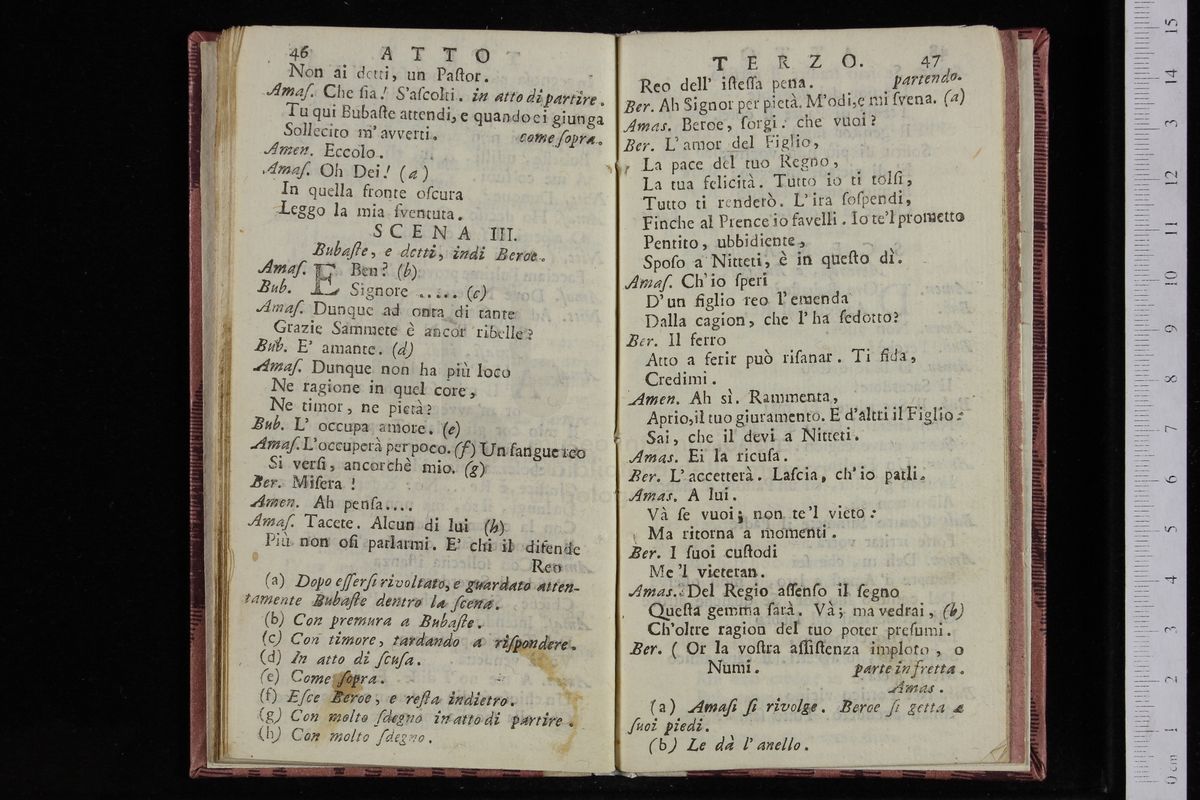 46 ATTO
Non ai detti, un Paſtor.
Amaſ. Che ſia! S'aſcolti. in atto di partire.
Tu qui Bubaſte attendi, e quando ei giunga
Sollecito m'avverti. come ſopra.
Amen. Eccolo.
Amaſ. Oh Dei! (a)
In quella fronte oſcura
Leggo la mia ſventuta.
SCENA III.
Bubaſte, e detti, indi Beroe.
Amaſ. E Ben? (b)
Bub. Signore ..... (c)
Amaſ. Dunque ad onta di tante
Grazie Sammete è ancor ribelle?
Bub. E' amante. (d)
Amaſ. Dunque non ha più loco
Ne ragione in quel core,
Ne timor, ne pietà?
Bub. L' occupa amore. (e)
Amaſ. L'occuperà per poco. (f) Un ſangue reo
Si verſi, ancorchè mio. (g)
Ber. Miſera!
Amen. Ah penſa....
Amaſ. Tacete. Alcun di lui (h)
Più non oſi parlarmi. E' chi il difende
Reo
(a) Dopo eſſerſi rivoltato, e guardato atten-
tamente Bubaſte dentro la ſcena.
(b) Con premura a Bubaſte.
(c) Con timore, tardando a riſpondere.
(d) In atto di ſcuſa.
(e) Come ſopra.
(f) Eſce Beroe, e reſta indietro.
(g) Con molto ſdegno in atto di partire.
(h) Con molto ſdegno.
TERZO. 47
Reo dell' iſteſſa pena. partendo.
Ber. Ah Signor per pietà. M'odi, e mi ſvena. (a)
Amas. Beroe, ſorgi: che vuoi?
Ber. L'amor del Figlio,
La pace del tuo Regno,
La tua felicità. Tutto io ti tolſi,
Tutto ti renderò. L'ira ſoſpendi,
Finche al Prence io favelli. Io te'l prometto
Pentito, ubbidiente,
Spoſo a Nitteti, è in queſto dì.
Amaſ. Ch'io ſperi
D'un figlio reo l'emenda
Dalla cagion, che l'ha ſedotto?
Ber. Il ferro
Atto a ferir può riſanar. Ti fida,
Credimi.
Amen. Ah sì. Rammenta,
Aprio, il tuo giuramento. E d'altri il Figlio:
Sai, che il devi a Nitteti.
Amas. Ei la ricuſa.
Ber. L'accetterà. Laſcia, ch'io parli.
Amas. A lui.
Và ſe vuoi; non te'l vieto:
Ma ritorna a momenti.
Ber. I ſuoi cuſtodi
Me 'l vieteran.
Amas. Del Regio aſſenſo il ſegno
Queſta gemma ſarà. Và; ma vedrai, (b)
Ch'oltre ragion del tuo poter preſumi.
Ber. (Or la voſtra aſſiſtenza imploto, o
Numi. parte in fretta.
Amas.
(a) Amaſi ſi rivolge. Beroe ſi getta a
ſuoi piedi.
(b) Le dà l'anello.
0 cm 1 2 3 4 5 6 7 8 9 10 11 12 13 14 15